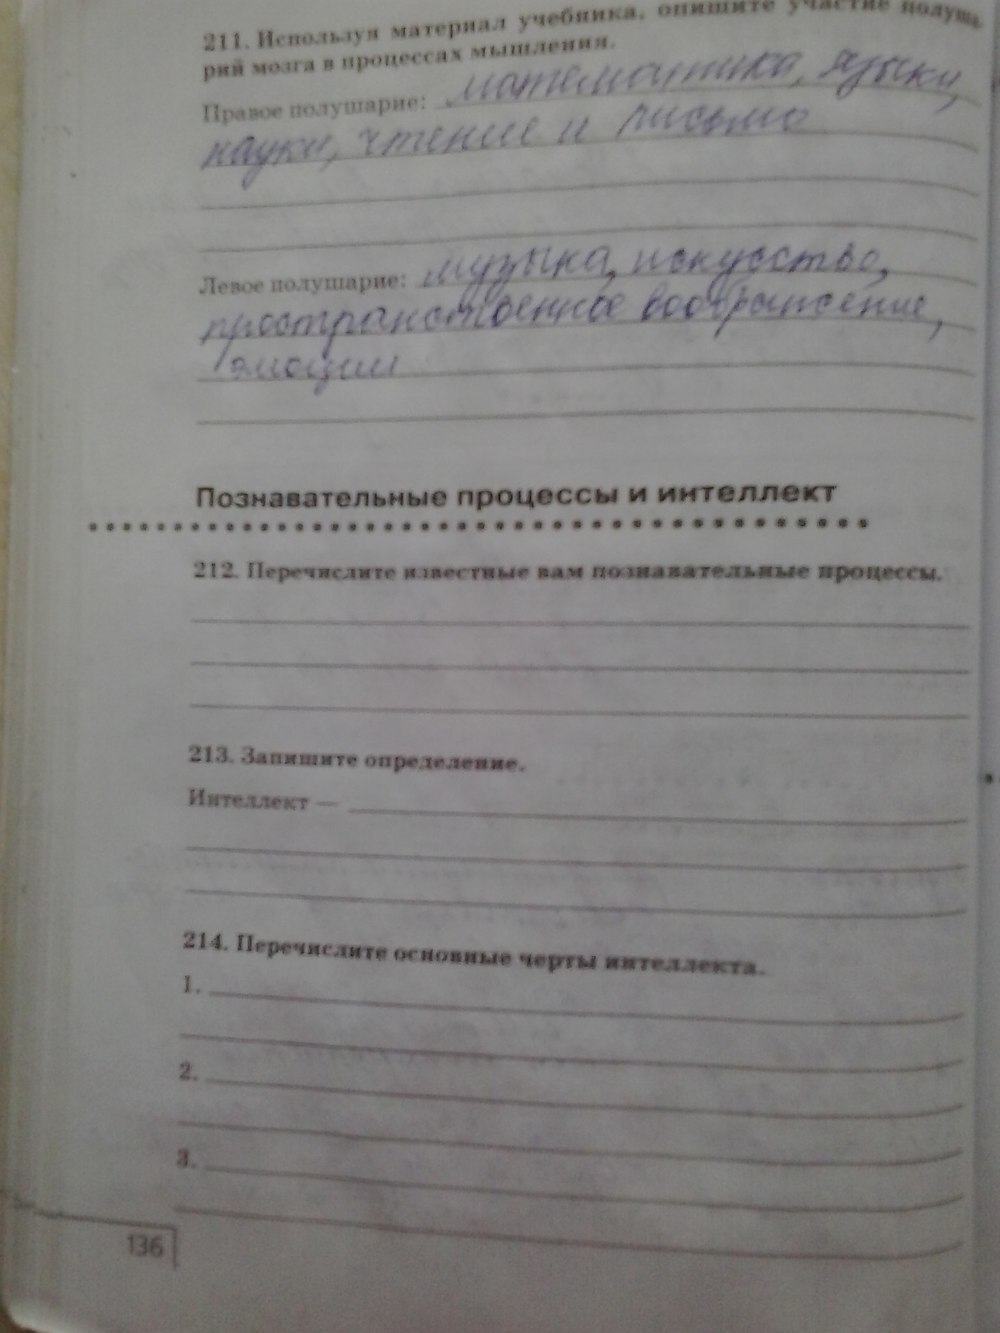 211. Используя материал учебника, опишите участие полуша-
рий мозга в процессах мышления.
Правое полушарие: математика, языки,
науки, чтение и письмо
Левое полушарие: музыка, искусство,
пространственное воображение,
эмоции
Познавательные процессы и интеллект
212. Перечислите известные вам познавательные процессы.
213. Запишите определение.
Интеллект —
214. Перечислите основные черты интеллекта.
1.
2.
3.
136